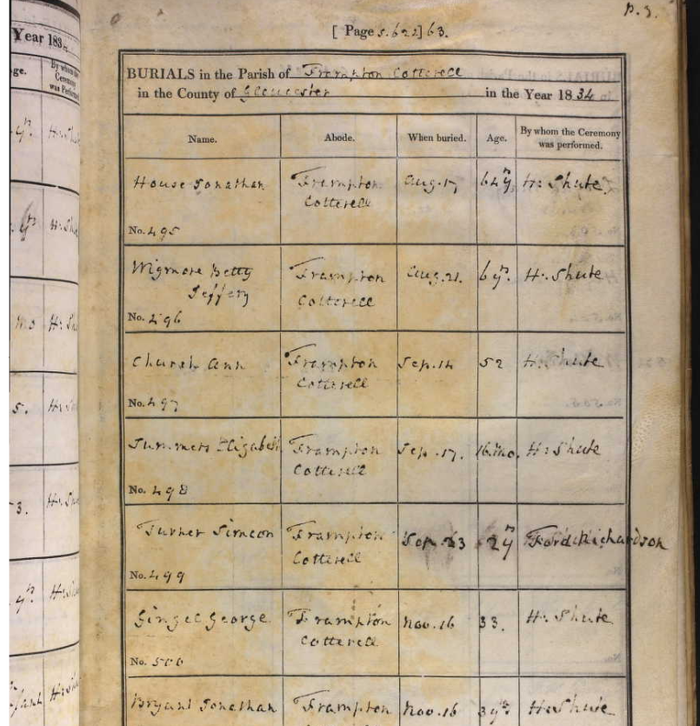 Year 183
ge.
By whom the Ceremony was Perform
[ Page 5.622] 63.
BURIALS in the Parish of Frampton Cotterell
in the County of Gloucester in the Year 1834
Name. Abode. When buried. Age. By whom the Ceremony was performed.
House Jonathan Frampton Cotterell Aug. 17 64 y H: Shute
No. 495
Wigmore Betty Jeffery Frampton Cotterell Aug. 21. H: Shute
No. 496
Church Ann Frampton Cotterell Sep. 14 52 H: Shute
No. 497
Summers Elizabeth Frampton Cotterell Sep. 17. 16 mo. H: Shute
No. 498
Turner Simeon Frampton Cotterell Sep. 23 2 y Ford Richardson
No. 499
Gingel George Frampton Cotterell Nov. 16 33. H: Shute
No. 500
Bryant Jonathan Frampton Nov. 16 H: Shute